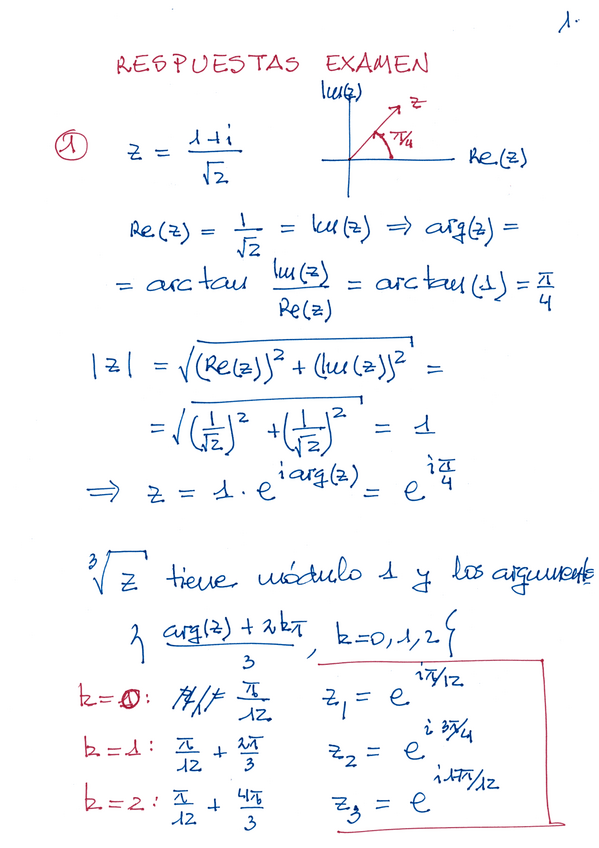 1.
RESPUESTAS EXAMEN
Im(z)
z
π/4
Re(z)
① z = (1+i)/√2
Re(z) = 1/√2 = Im(z) ⇒ arg(z) =
= arc tan Im(z)/Re(z) = arc tan(1) = π/4
|z| = √((Re(z))² + (Im(z))²) =
= √((1/√2)² + (1/√2)²) = 1
⇒ z = 1 · e^{i arg(z)} = e^{i π/4}
∛z tiene módulo 1 y los argumentos
{ (arg(z) + 2kπ)/3 , k=0,1,2 }
k=0: π/12 z₁ = e^{iπ/12}
k=1: π/12 + 2π/3 z₂ = e^{i 3π/4}
k=2: π/12 + 4π/3 z₃ = e^{i 17π/12}